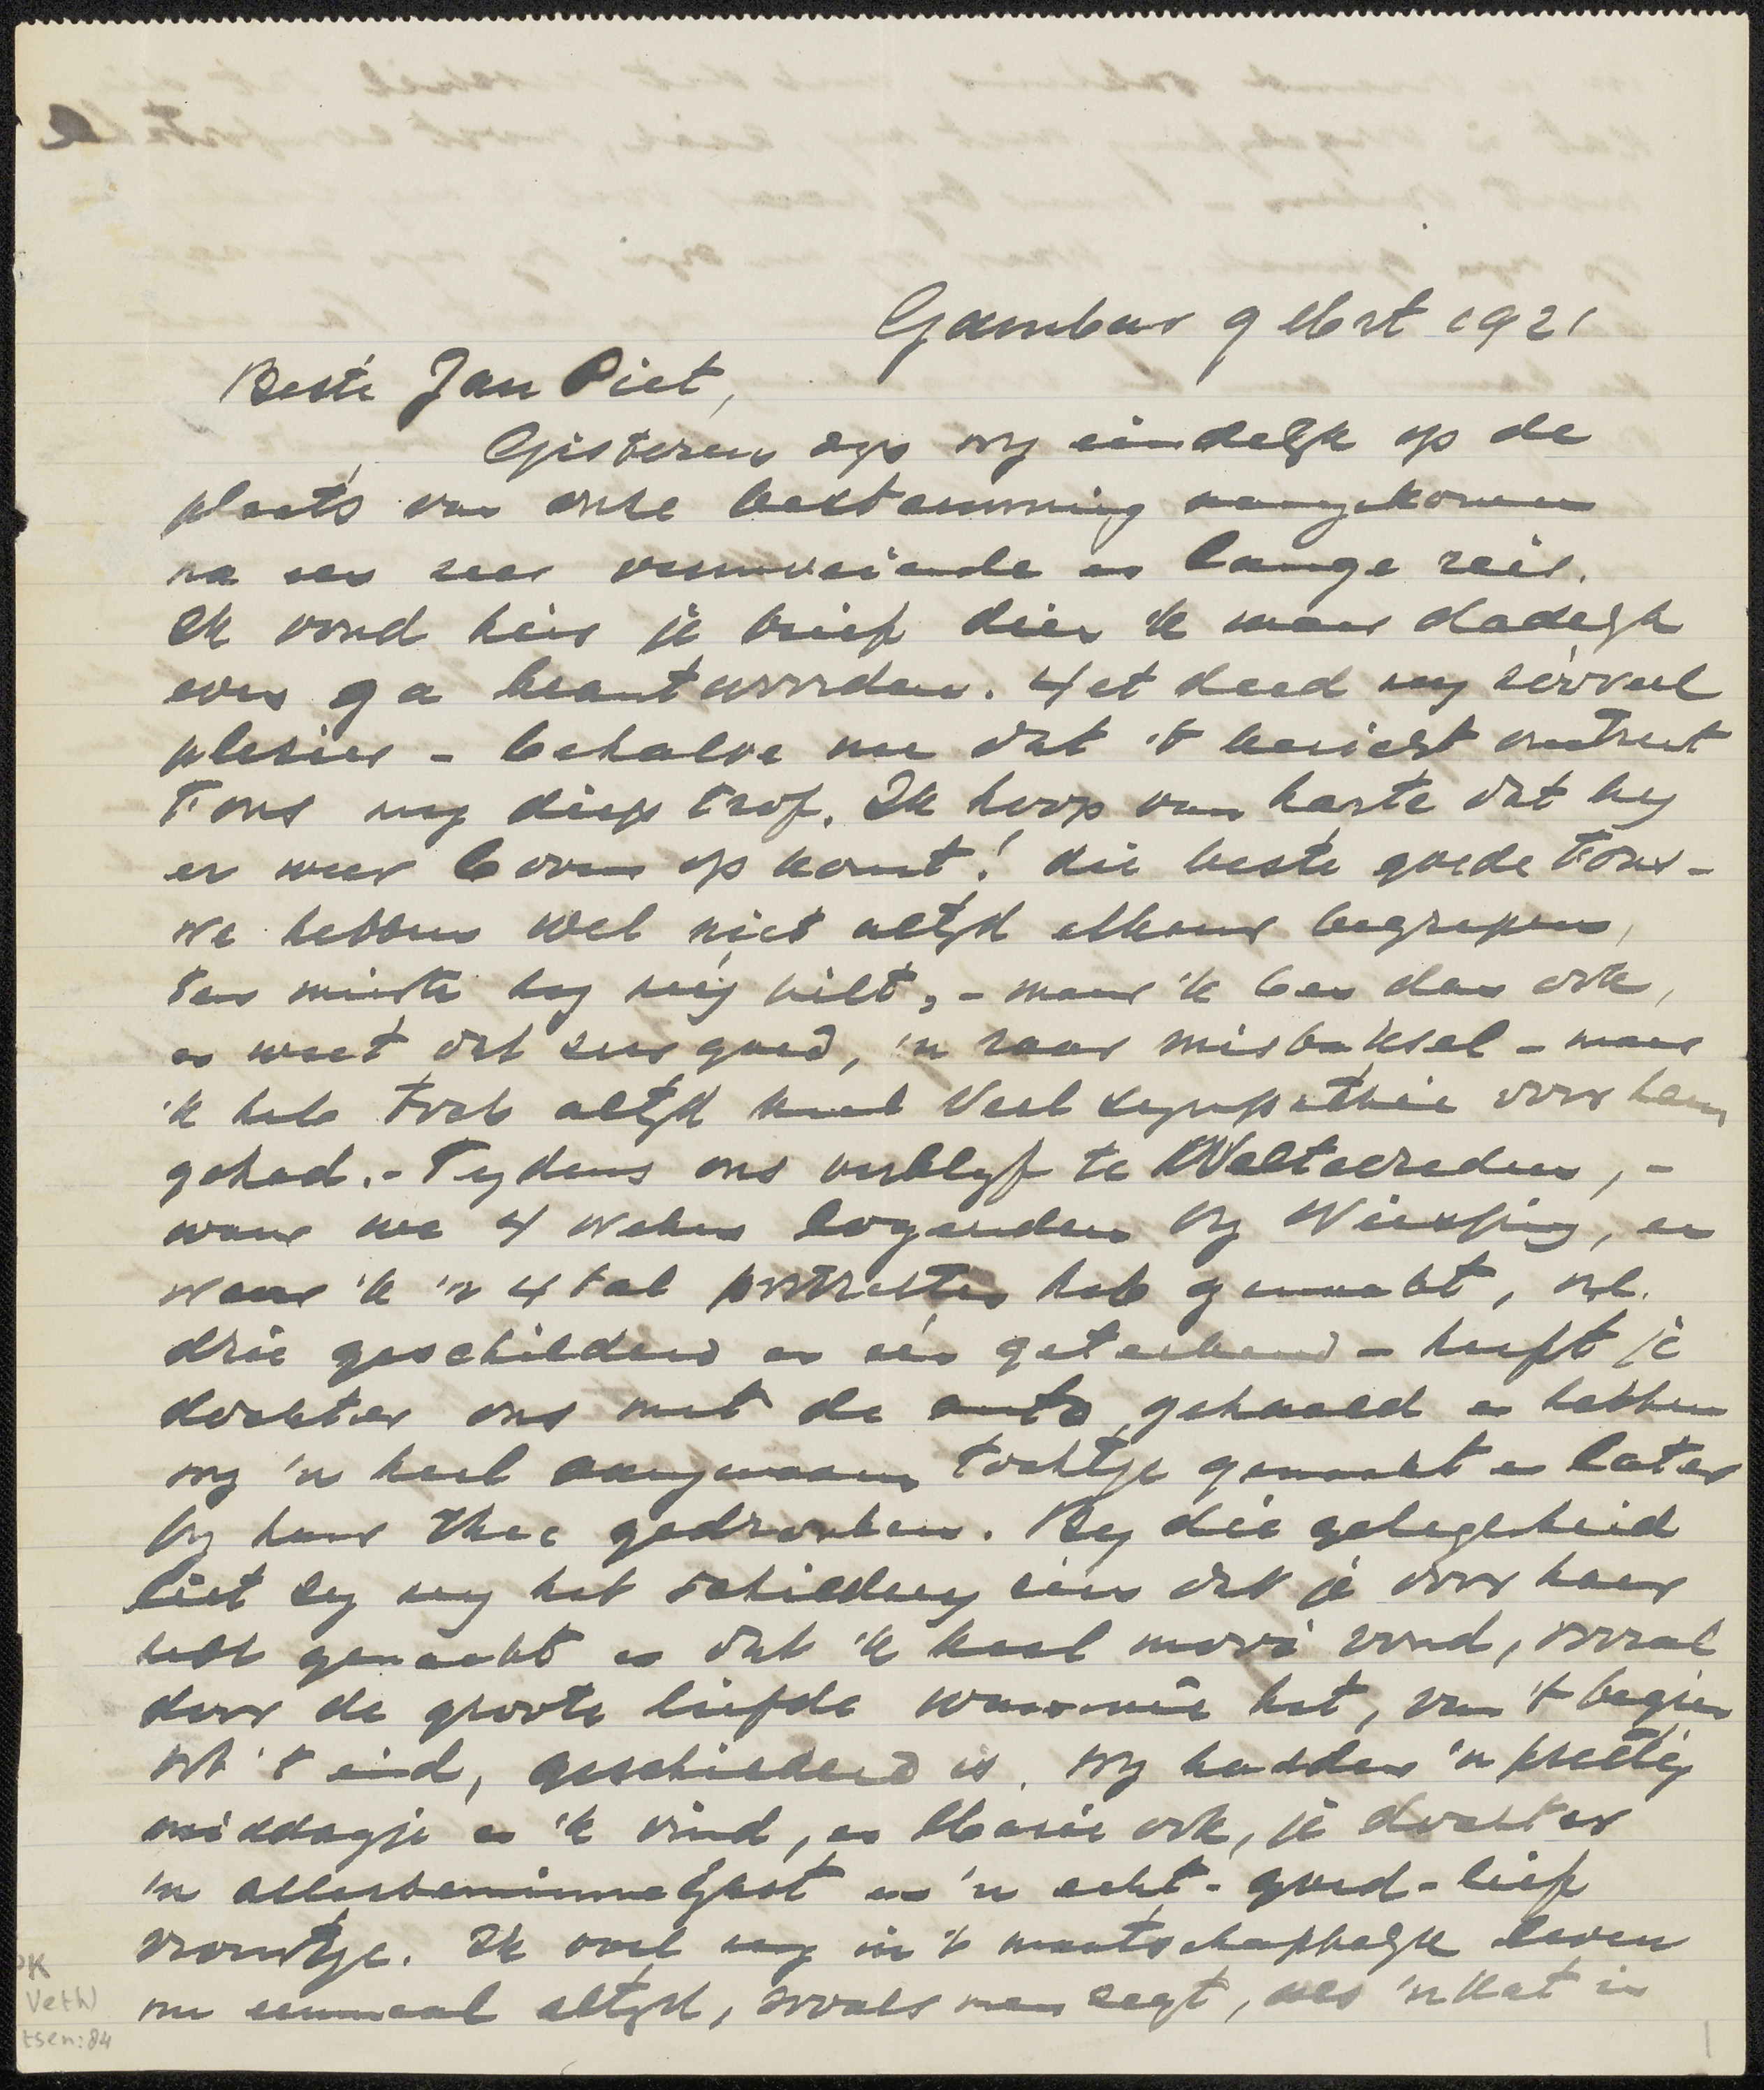 Gambur 9 Mrt 1921
Beste Jan Piet,
Gisteren zyn wy eindelyk op de
plaats van onze bestemming aangekomen
na een zeer vermoeiende en lange reis.
Ik vond hier je brief dien 'k maar dadelyk
even ga beantwoorden. Het deed my zéérveel
plezier - behalve nu dat 't bericht omtrent
Fons my diep trof. Ik hoop van harte dat hy
er weer boven op komt! die beste goede Fons -
we hebben wel niet altyd elkaar begrepen,
ten minste hy my niet, - maar 'k ben dan ook,
en weet dat zeer goed, 'n raar misbaksel - maar
'k heb toch altyd heel veel sympathie voor hem
gehad. - Tydens ons verblyf te Weltevreden, -
waar we 4 weken logeerden by Wiessing, en
waar 'k 'n 4 tal portretten heb gemaakt, nl.
drie geschilderd en één geteekend - heeft je
dochter ons met de auto gehaald en hebben
wy 'n heel aangenaam tochtje gemaakt en later
by haar thee gedronken. By die gelegenheid
liet zy my het schildery zien dat je voor haar
hebt gemaakt en dat 'k heel mooi vond, vooral
door de groote liefde waarmeê het, van 't begin
tot 't eind, geschilderd is. Wy hadden 'n prettig
middagje en 'k vind, en Marie ook, je dochter
'n allerbeminnelykst en 'n echt - goed - lief
vrouwtje. Ik voel my in 't maatschappelyk leven
nu eenmaal altyd, zooals men zegt, als 'n kat in
PK
Veth
tsen: 84